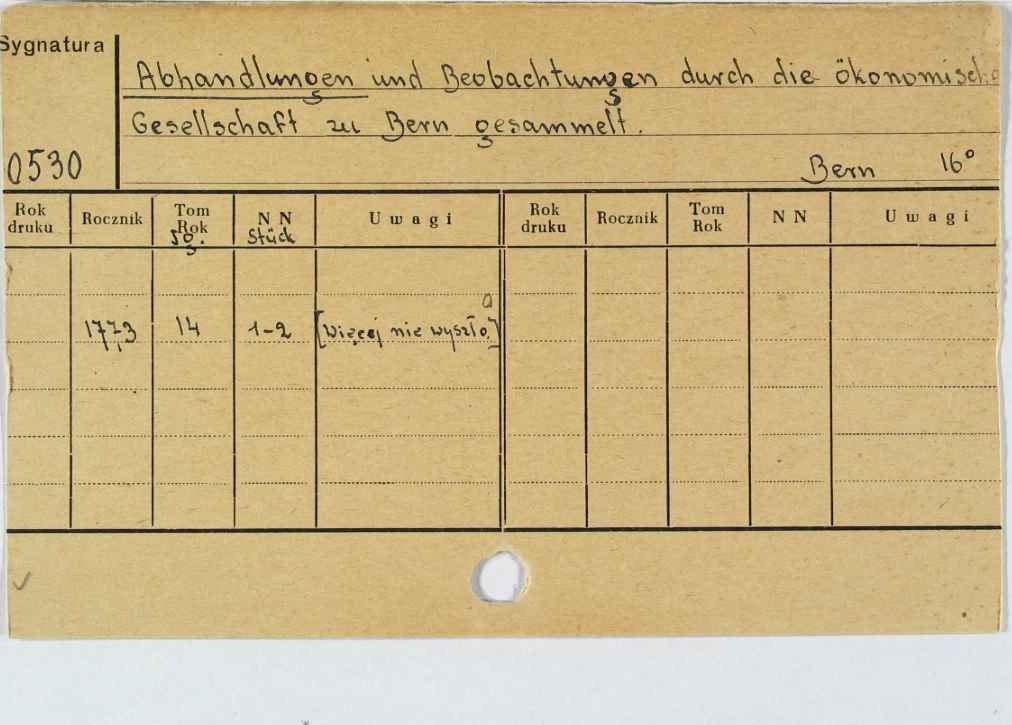 Sygnatura
Abhandlungen und Beobachtungen durch die ökonomische
Gesellschaft zu Bern gesammelt.
0530
Bern 16°
Rok druku Rocznik Tom Rok Jg. N N Stück Uwagi Rok druku Rocznik Tom Rok N N Uwagi
1773 14 1-2 [Więcej nie wyszło.]